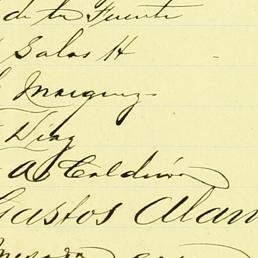 de la Fuente
Salas H
Marquez
Diaz
A. Calderón
Gastos Alam